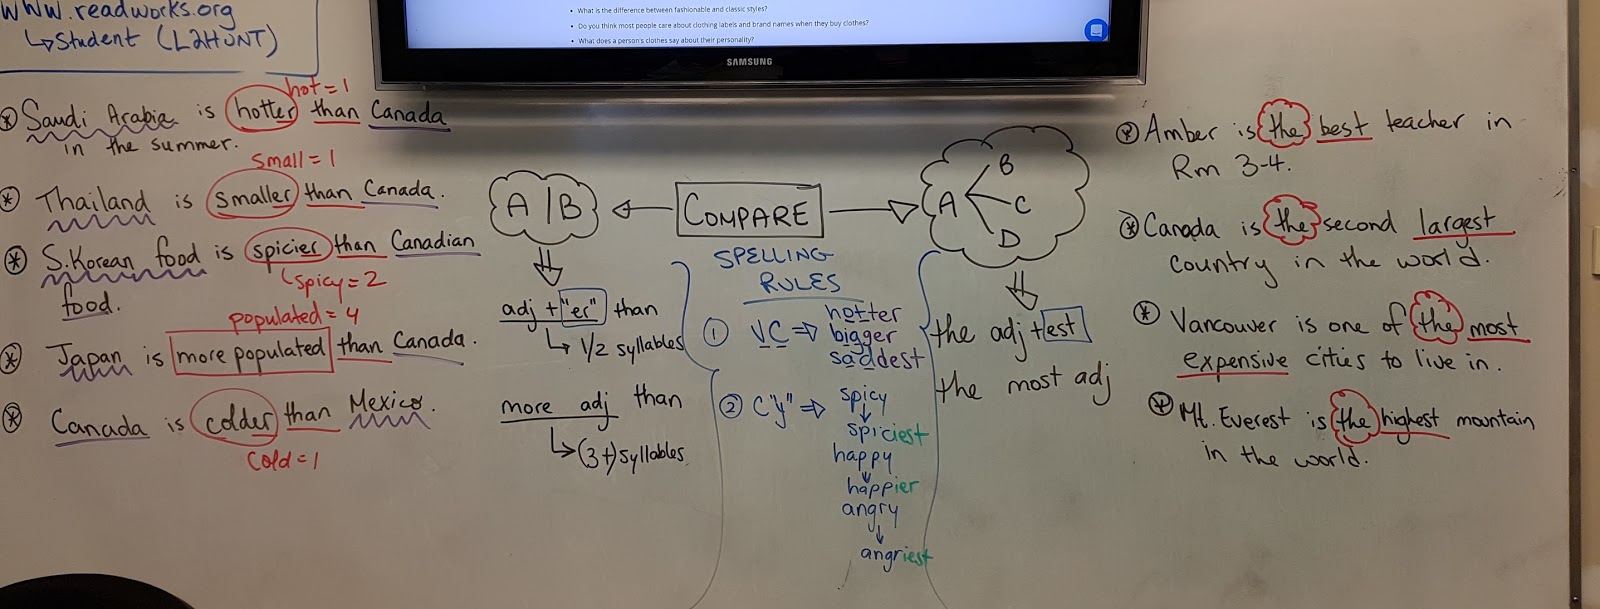 www.readworks.org
↳ Student (L2HUNT)
• What is the difference between fashionable and classic styles?
• Do you think most people care about clothing labels and brand names when they buy clothes?
• What does a person's clothes say about their personality?
SAMSUNG
hot = 1
* Saudi Arabia is hotter than Canada
in the summer.
small = 1
* Thailand is smaller than Canada.
* S.Korean food is spicier than Canadian
food.
↳ spicy = 2
populated = 4
* Japan is more populated than Canada.
* Canada is colder than Mexico.
cold = 1
A | B
← COMPARE →
A
B
C
D
adj + "er" than
↳ 1/2 syllables
more adj than
↳ (3+) syllables
SPELLING
RULES
① VC ⇒ hotter
bigger
saddest
② C"y" ⇒ spicy
↓
spiciest
happy
↓
happier
angry
↓
angriest
the adj + est
the most adj
* Amber is the best teacher in
Rm 3-4.
* Canada is the second largest
country in the world.
* Vancouver is one of the most
expensive cities to live in.
* Mt. Everest is the highest mountain
in the world.